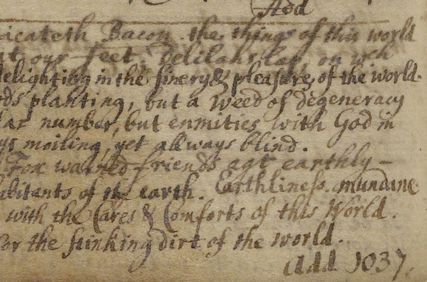 Add
icateth Bacon. the things of this world
at our feet. Delilahs lap on wch
delighting in the finery & pleasure of the world.
ds planting, but a weed of degeneracy
lar number, but enmities with God in
ys moiling, yet always blind.
Fox warned friends agt earthly-
abitants of the earth. Earthliness. mundane
with the Cares & Comforts of this World.
for the stinking dirt of the world.
Add 1037.